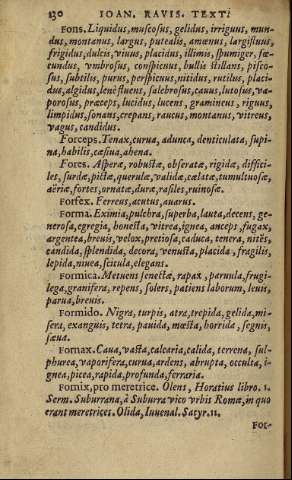 130 IOAN. RAVIS. TEXT:
Fons. Liquidus, muscosus, gelidus, irriguus, mun-
dus, montanus, largus, putealis, amœnus, largifluus,
frigidus, dulcis, viuus, placidus, illimis, spumiger, fœ-
cundus, vmbrosus, conspicuus, bullis stillans, pisco-
sus, subtilis, purus, perspicuus, nitidus, rutilus, placi-
dus, algidus, lenè fluens, salebrosus, cauus, lutosus, va-
porosus, præceps, lucidus, lucens, gramineus, riguus,
limpidus, sonans, crepans, raucus, montanus, vitreus,
vagus, candidus.
Forceps. Tenax, curua, adunca, denticulata, supi-
na, habilis, cæsiua, ahena.
Fores. Asperæ, robustæ, obseratæ, rigidæ, diffici-
les, surdæ, pictæ, querulæ, validæ, cælatæ, tumultuosæ,
aëriæ, fortes, ornatæ, duræ, rasiles, ruinosæ.
Forfex. Ferreus, acutus, auarus.
Forma. Eximia, pulchra, superba, lauta, decens, ge-
nerosa, egregia, honesta, vitrea, ignea, anceps, fugax,
argentea, breuis, velox, pretiosa, caduca, tenera, nitēs,
candida, splendida, decora, venusta, placida, fragilis,
lepida, niuea, scitula, elegans.
Formica. Metuens senectæ, rapax, paruula, frugi-
lega, granifera, repens, solers, patiens laborum, leuis,
parua, breuis.
Formido. Nigra, turpis, atra, trepida, gelida, mi-
sera, exanguis, tetra, pauida, mœsta, horrida, segnis,
sæua.
Fornax. Caua, vasta, calcaria, calida, terrena, sul-
phurea, vaporifera, curua, ardens, abrupta, occulta, i-
gnea, picea, rapida, profunda, ferraria.
Fornix, pro meretrice. Olens, Horatius libro. 1.
Serm. Suburrana, à Suburra vico vrbis Romæ, in quo
erant meretrices. Olida, Iuuenal. Satyr. 11.
For-